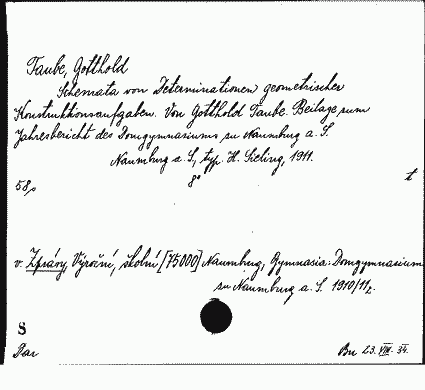 Taube, Gotthold
Schemata von Determinationen geometrischer
Konstruktionsaufgaben. Von Gotthold Taube. Beilage zum
Jahresbericht des Domgymnasiums zu Naumburg a. S.
Naumburg a. S., typ. H. Sieling, 1911.
58 s 8° t
v. Zprávy, Výroční, školní [75000] Naumburg, Gymnasia: Domgymnasium
zu Naumburg a. S. 1910/11
S
Dar Bu 23. VIII. 34.